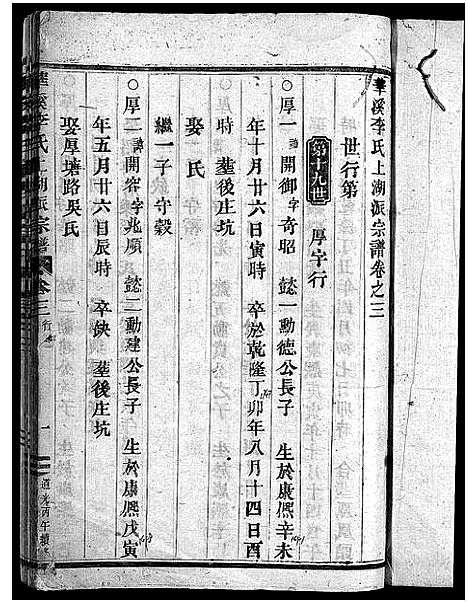 華溪李氏上湖派宗譜卷之三
世行第
第十九世 厚字行
○厚一 諱開御字奇昭 懿一勳德公長子 生於康熙辛未
年十月廿六日寅時 卒於乾隆丁卯年八月十四日酉
時 塟後庄坑
娶 氏
繼一子守穀
○厚二 諱開容字兆順 懿二勳建公長子 生於康熙戊寅
年五月廿六日辰時 卒缺 塟後庄坑
娶厚塘路吳氏
華溪李氏上湖派宗譜 卷三 行 一 道光丙午續